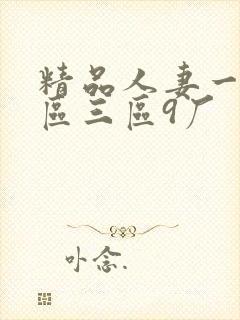 精品人妻一
區三區9厂
卟念.